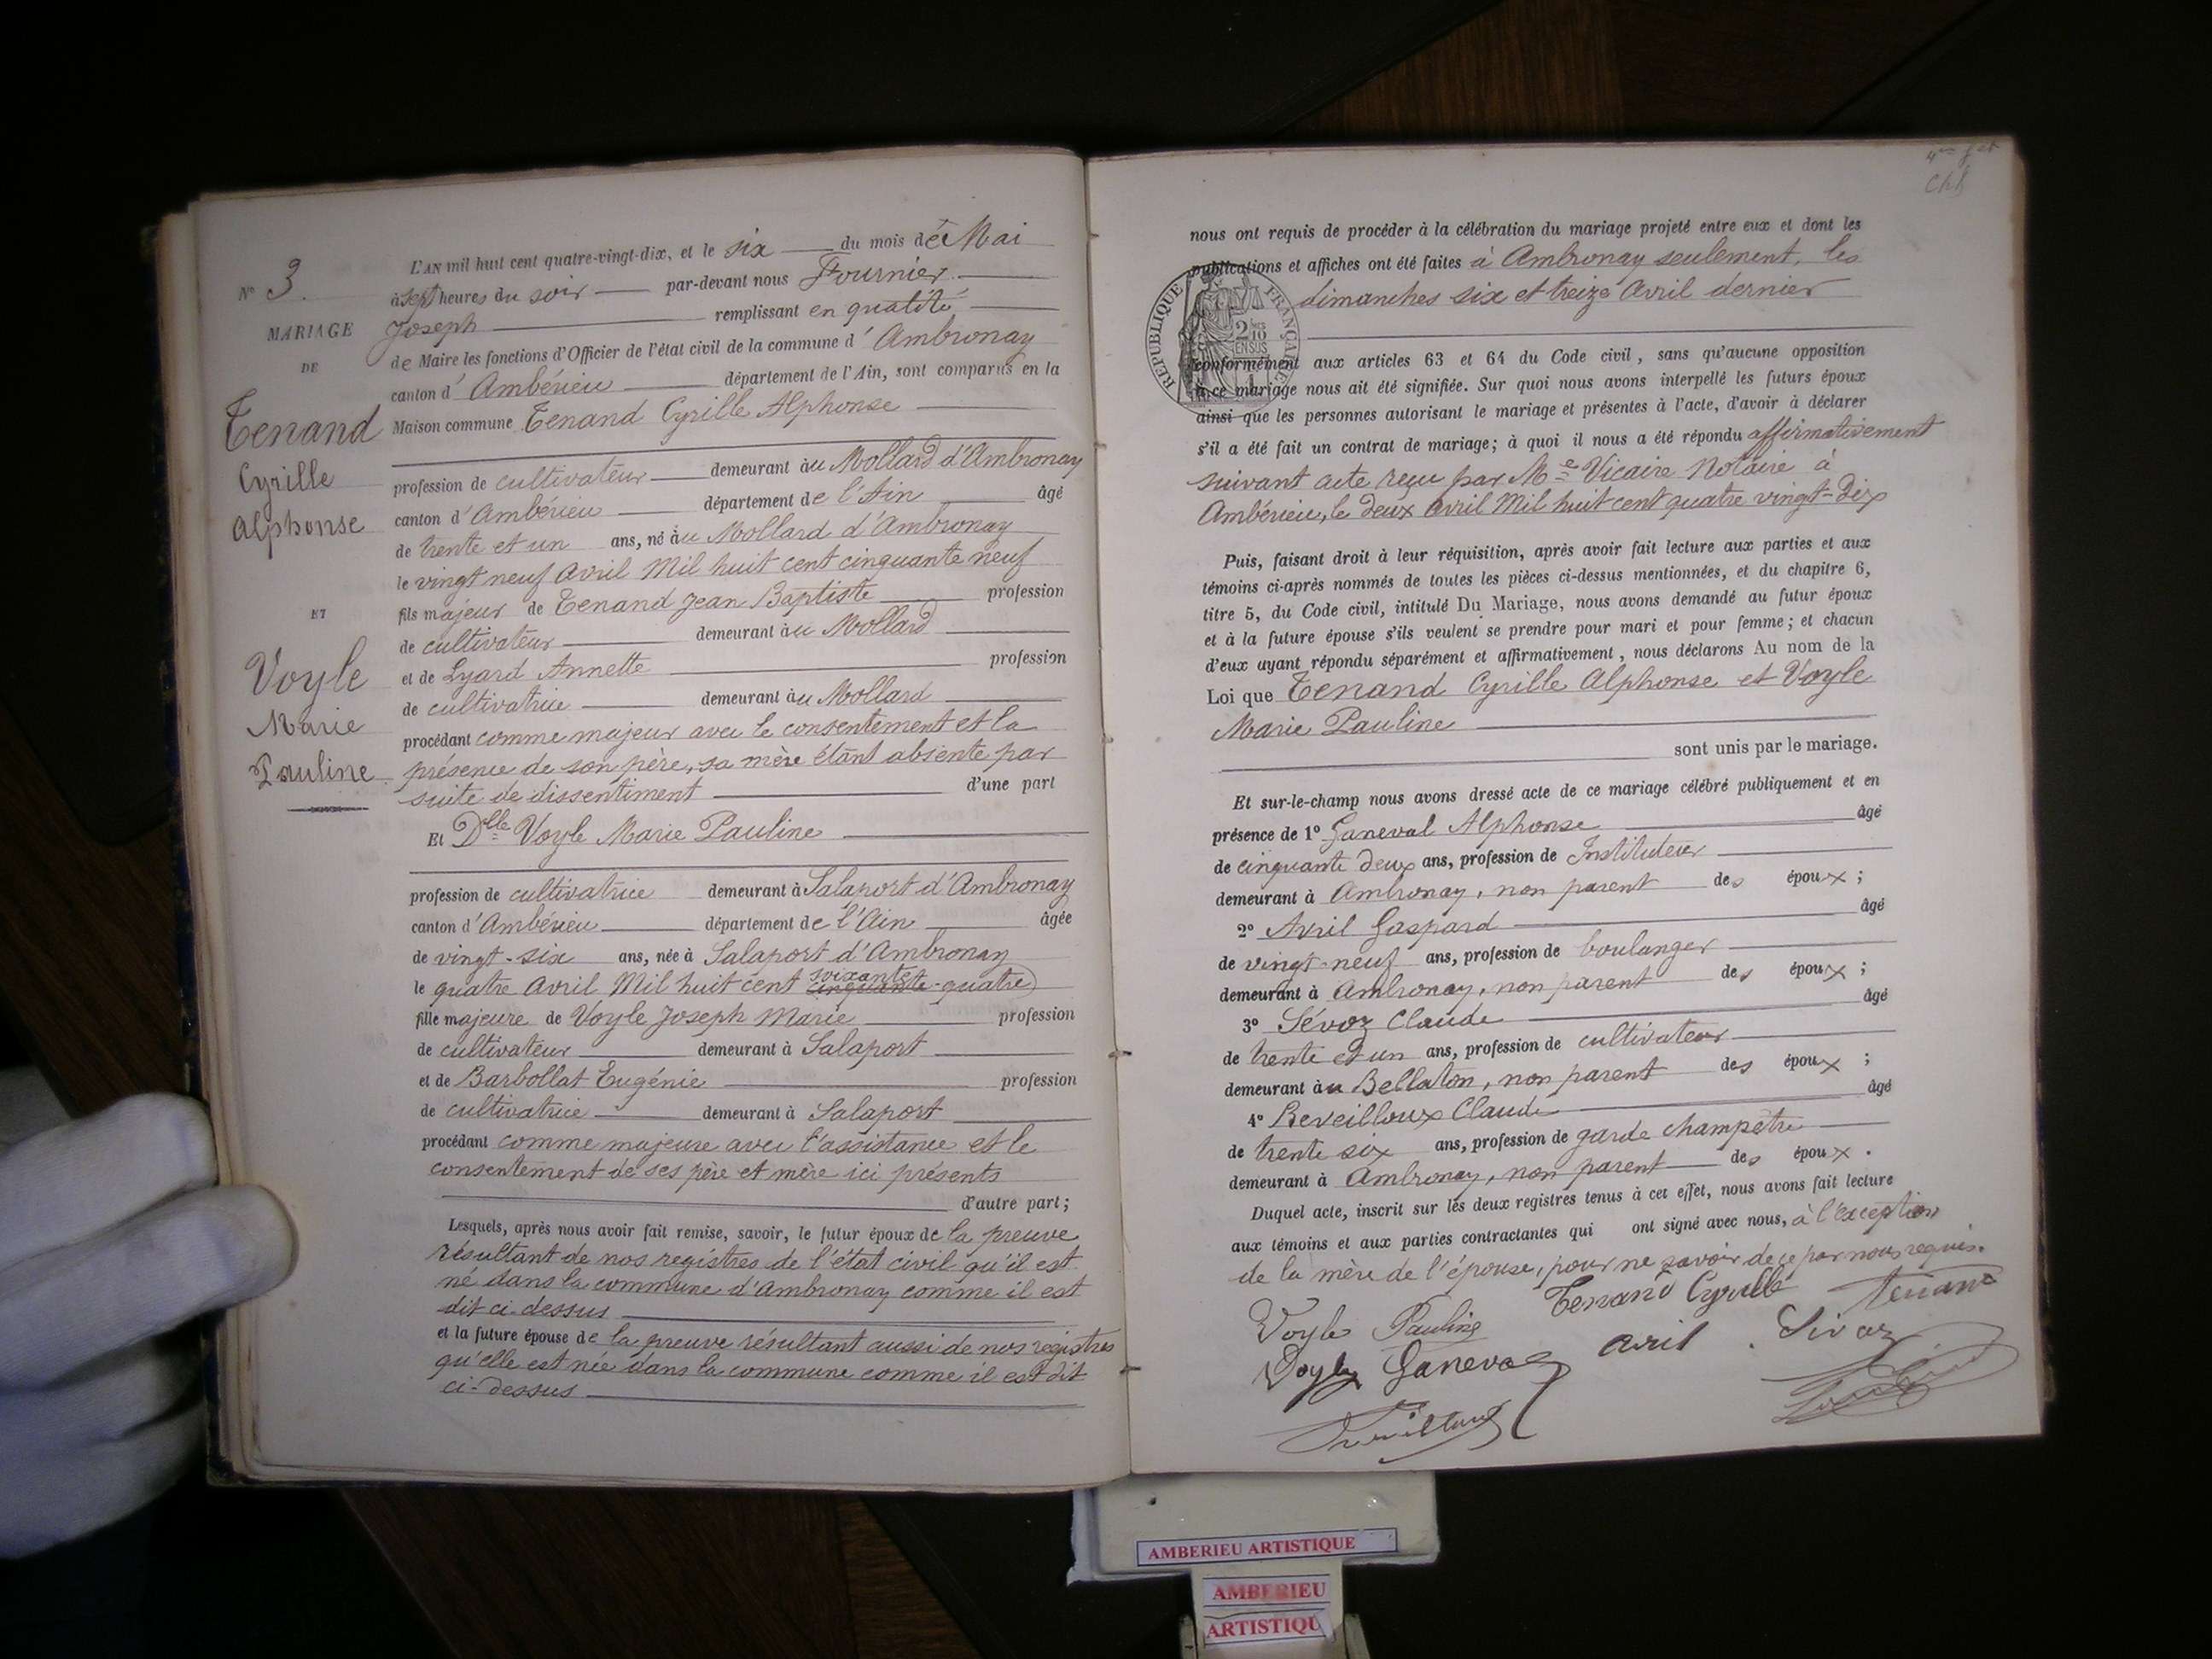 N° 3.
MARIAGE
DE
Tenand
Cyrille
Alphonse
ET
Voyle
Marie
Pauline
L'AN mil huit cent quatre-vingt-dix, et le six du mois de Mai
à sept heures du soir par-devant nous Fournier
Joseph remplissant en qualité
de Maire les fonctions d'Officier de l'état civil de la commune d'Ambronay
canton d'Ambérieu département de l'Ain, sont comparus en la
Maison commune Tenand Cyrille Alphonse
profession de cultivateur demeurant au Mollard d'Ambronay
canton d'Ambérieu département de l'Ain âgé
de trente et un ans, né au Mollard d'Ambronay
le vingt neuf Avril Mil huit cent cinquante neuf
fils majeur de Tenand Jean Baptiste profession
de cultivateur demeurant au Mollard
et de Lyard Annette profession
de cultivatrice demeurant au Mollard
procédant comme majeur avec le consentement et la
présence de son père, sa mère étant absente par
suite de dissentiment d'une part
Et Dlle Voyle Marie Pauline
profession de cultivatrice demeurant à Salaport d'Ambronay
canton d'Ambérieu département de l'Ain âgée
de vingt-six ans, née à Salaport d'Ambronay
soixante
le quatre Avril Mil huit cent cinquante-quatre
fille majeure de Voyle Joseph Marie profession
de cultivateur demeurant à Salaport
et de Barbollat Eugénie profession
de cultivatrice demeurant à Salaport
procédant comme majeure avec l'assistance et le
consentement de ses père et mère ici présents
d'autre part;
Lesquels, après nous avoir fait remise, savoir, le futur époux de la preuve
résultant de nos registres de l'état civil qu'il est
né dans la commune d'Ambronay comme il est
dit ci-dessus
et la future épouse de la preuve résultant aussi de nos registres
qu'elle est née dans la commune comme il est dit
ci-dessus
nous ont requis de procéder à la célébration du mariage projeté entre eux et dont les
publications et affiches ont été faites à Ambronay seulement, les
dimanches six et treize Avril dernier
RÉPUBLIQUE FRANÇAISE
2/10 EN SUS
conformément aux articles 63 et 64 du Code civil, sans qu'aucune opposition
à ce mariage nous ait été signifiée. Sur quoi nous avons interpellé les futurs époux
ainsi que les personnes autorisant le mariage et présentes à l'acte, d'avoir à déclarer
s'il a été fait un contrat de mariage; à quoi il nous a été répondu affirmativement
suivant acte reçu par Me Vicaire Notaire à
Ambérieu, le deux Avril Mil huit cent quatre vingt-dix
Puis, faisant droit à leur réquisition, après avoir fait lecture aux parties et aux
témoins ci-après nommés de toutes les pièces ci-dessus mentionnées, et du chapitre 6,
titre 5, du Code civil, intitulé Du Mariage, nous avons demandé au futur époux
et à la future épouse s'ils veulent se prendre pour mari et pour femme; et chacun
d'eux ayant répondu séparément et affirmativement, nous déclarons Au nom de la
Loi que Tenand Cyrille Alphonse et Voyle
Marie Pauline
sont unis par le mariage.
Et sur-le-champ nous avons dressé acte de ce mariage célébré publiquement et en
présence de 1° Ganeval Alphonse âgé
de cinquante deux ans, profession de Instituteur
demeurant à Ambronay, non parent des époux;
2° Avril Gaspard âgé
de vingt-neuf ans, profession de boulanger
demeurant à Ambronay, non parent des époux;
3° Sévoz Claude âgé
de trente et un ans, profession de cultivateur
demeurant au Bellaton, non parent des époux;
4° Reveilloux Claude âgé
de trente six ans, profession de garde champêtre
demeurant à Ambronay, non parent des époux.
Duquel acte, inscrit sur les deux registres tenus à cet effet, nous avons fait lecture
aux témoins et aux parties contractantes qui ont signé avec nous, à l'exception
de la mère de l'épouse, pour ne savoir de ce par nous requis.
Voyle Pauline Tenand Cyrille Tenand
Voyle Ganeval avril Sivoz
AMBERIEU ARTISTIQUE
AMBERIEU
ARTISTIQU